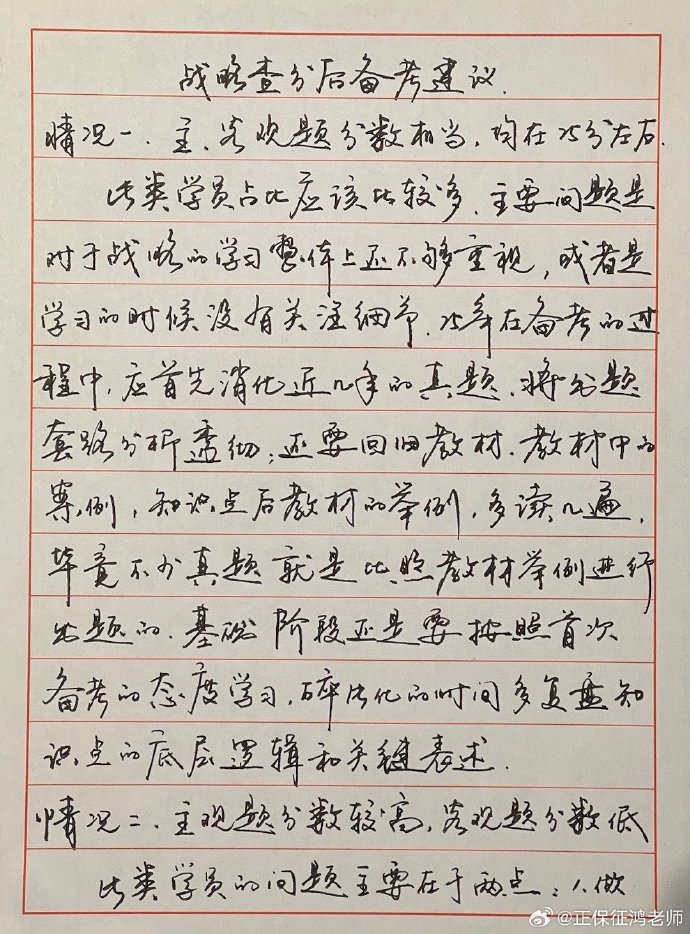 战略查分后备考建议.
情况一.主、客观题分数相当,均在25分左右.
此类学员占比应该比较多.主要问题是
对于战略的学习整体上还不够重视,或者是
学习的时候没有关注细节.25年在备考的过
程中,应首先消化近几年的真题.将出题
套路分析透彻;还要回归教材.教材中的
案例,知识点后教材的举例,多读几遍,
毕竟不少真题就是比照教材举例进行
出题的.基础阶段还是要按照首次
备考的态度学习,碎片化的时间多复盘知
识点的底层逻辑和关键表述.
情况二.主观题分数较高,客观题分数低
此类学员的问题主要在于两点:1.做
@正保征鸿老师